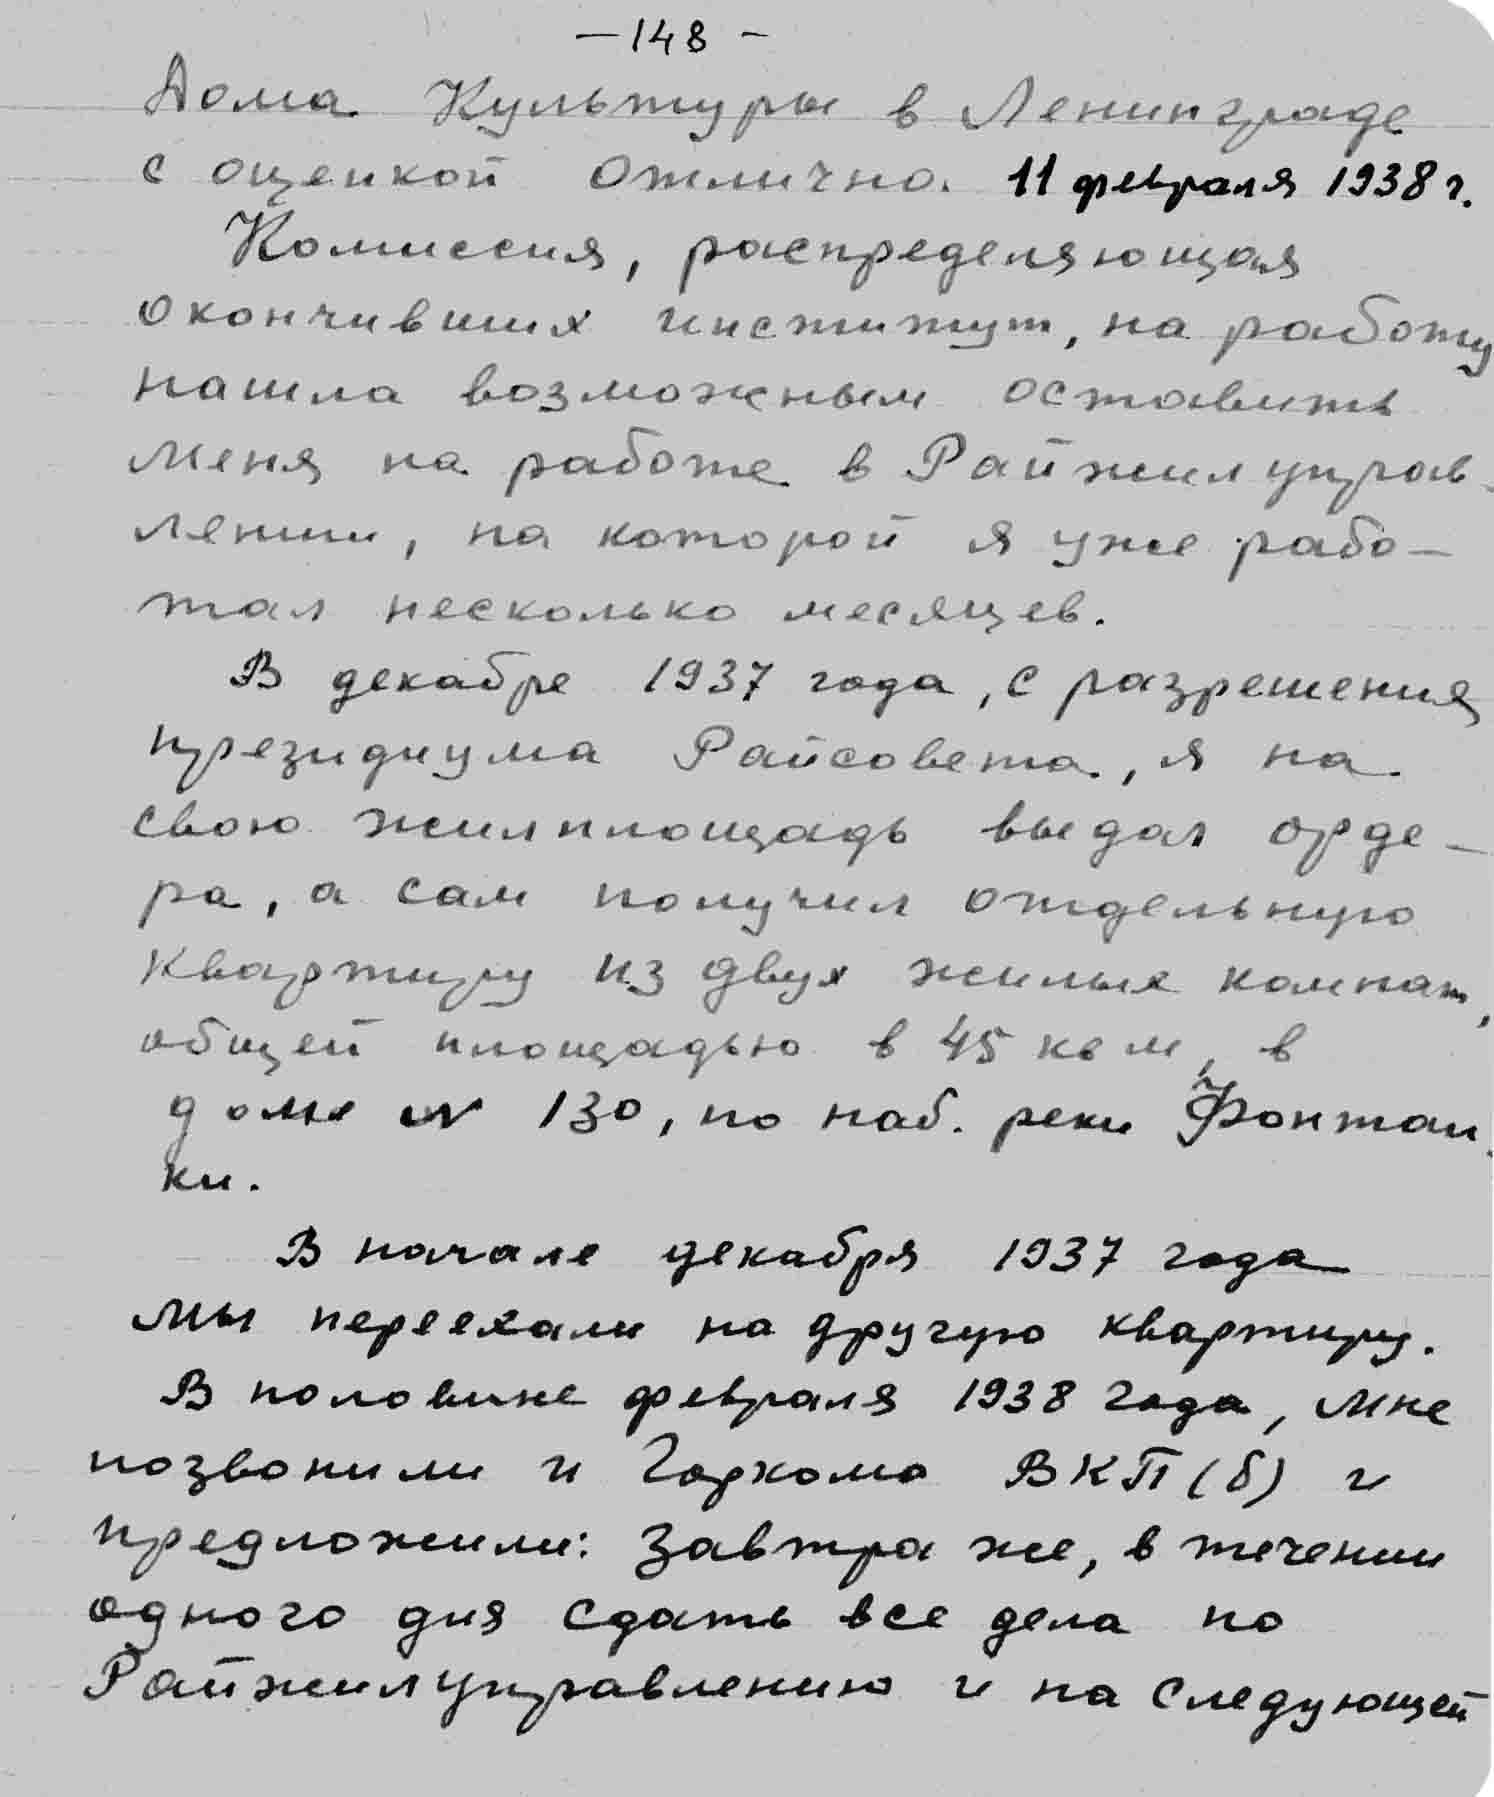 -148-
Дома Культуры в Ленинграде
с оценкой отлично. 11 февраля 1938 г.
Комиссия, распределяющая
окончивших институт, на работу
нашла возможным оставить
меня на работе в Райжилуправ-
лении, на которой я уже рабо-
тал несколько месяцев.
В декабре 1937 года, с разрешения
президиума Райсовета, я на
свою жилплощадь выдал орде-
ра, а сам получил отдельную
квартиру из двух жилых комнат,
общей площадью в 45 кв м, в
доме № 130, по наб. реки Фонтан-
ки.
В начале декабря 1937 года
мы переехали на другую квартиру.
В половине февраля 1938 года, мне
позвонили и Горкома ВКП(б) и
предложили: Завтра же, в течении
одного дня сдать все дела по
Райжилуправлению и на следующей